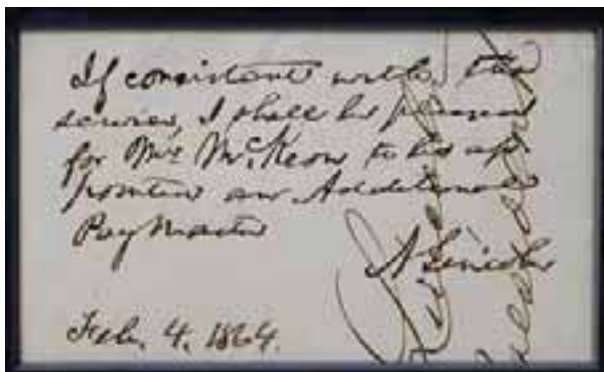 If consistent with the
service, I shall be pleased
for Mr. McKeon to be ap-
pointed an Additional
Paymaster
A Lincoln
Feb. 4. 1864.